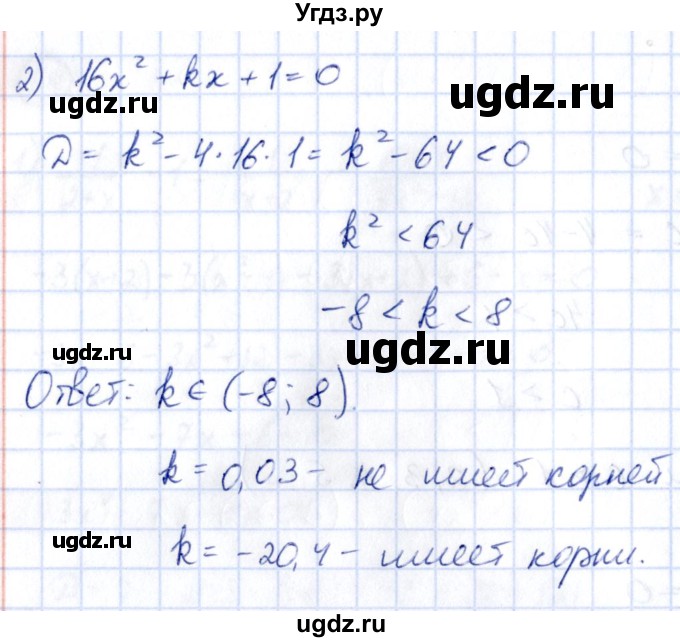 Угдз.ру
2) 16x² + kx + 1 = 0
ugdz.ru
ugdz.ru
D = k² - 4·16·1 = k² - 64 < 0
k² < 64
-8 < k < 8
ugdz.ru
ugdz.ru
Ответ: k ∈ (-8; 8).
k = 0,03 - не имеет корней
ugdz.ru
k = -20,4 - имеет корни.
ugdz.ru